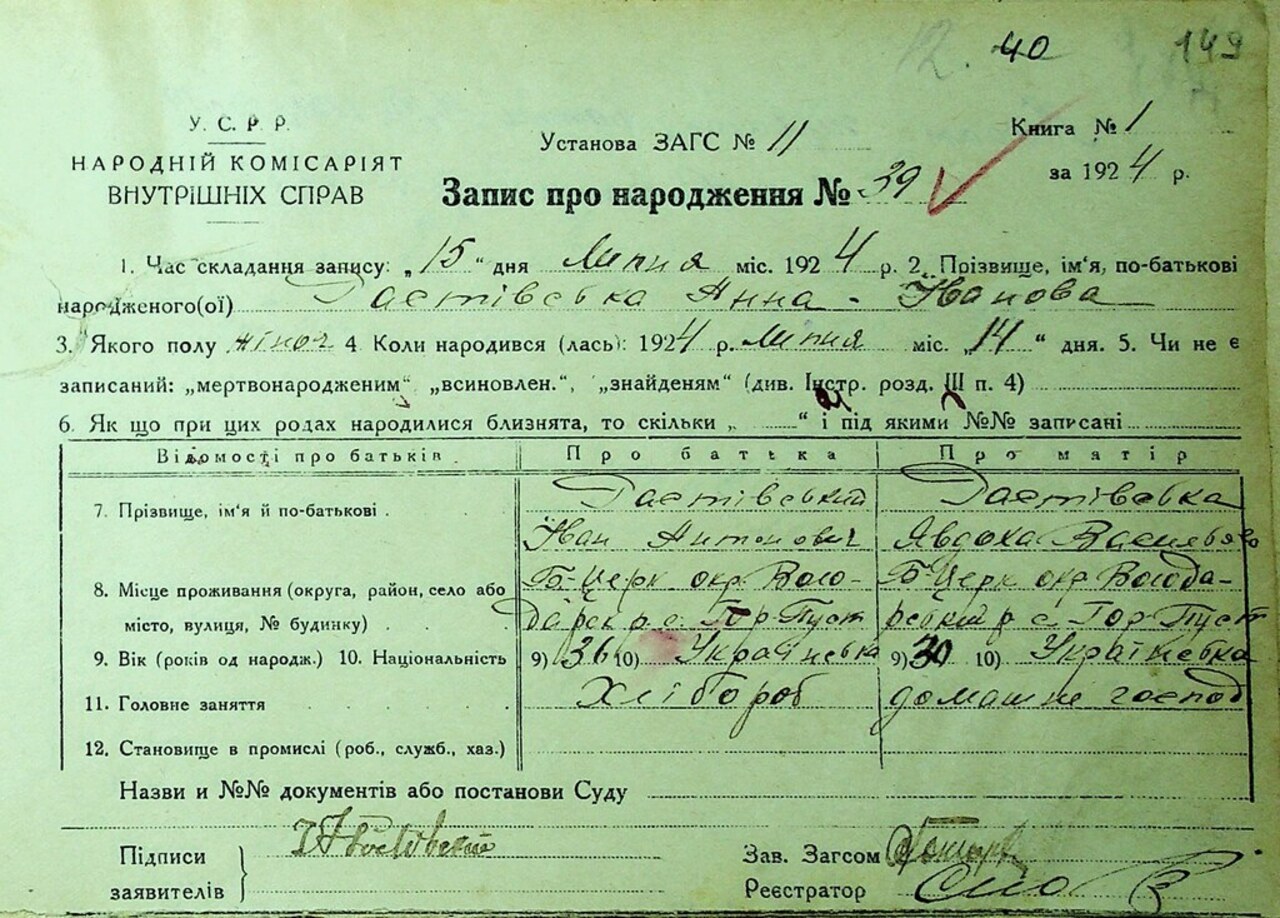 12. 40 149
У. С. Р. Р.
НАРОДНІЙ КОМІСАРІЯТ
ВНУТРІШНІХ СПРАВ
Установа ЗАГС № 11
Книга № 1
за 1924 р.
Запис про народження № 39
1. Час складання запису: „15“ дня Липня міс. 1924 р. 2. Прізвище, ім'я, по-батькові
народженого(ої) Гастівська Анна - Іванова
3. Якого полу жіноч 4. Коли народився (лась): 1924 р. Липня міс. „14“ дня. 5. Чи не є
записаний: „мертвонародженим“ „всиновлен.“, „знайденям“ (див. Інстр. розд. III п. 4)
6. Як що при цих родах народилися близнята, то скільки „ “ і під якими №№ записані
Відомості про батьків. Про батька Про матір
7. Прізвище, ім'я й по-батькові Гастівський Гастівська
Іван Антонович Явдоха Васильево
8. Місце проживання (округа, район, село або Б-Церк окр. Воло- Б-Церк окр Волода-
місто, вулиця, № будинку) дарск р. с. Гор-Пуст рський р с. Гор-Пуст
9. Вік (років од народж.) 10. Національність 9) 36 10) Українська 9) 30 10) Українська
11. Головне заняття Хлібороб домашнє господ
12. Становище в промислі (роб., служб., хаз.)
Назви и №№ документів або постанови Суду
Підписи
заявителів
Зав. Загсом
Реєстратор